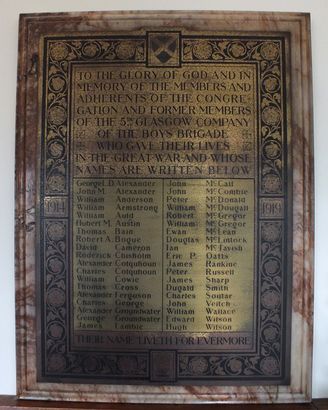 TO THE GLORY OF GOD AND IN
MEMORY OF THE MEMBERS AND
ADHERENTS OF THE CONGRE-
GATION AND FORMER MEMBERS
OF THE 5TH GLASGOW COMPANY
OF THE BOYS BRIGADE
WHO GAVE THEIR LIVES
IN THE GREAT WAR AND WHOSE
NAMES ARE WRITTEN BELOW
1914
1919
George D. Alexander
John M. Alexander
William Anderson
William Armstrong
William Auld
Hubert M. Austin
Thomas Bain
Robert A. Bogue
David Cameron
Roderick Chisholm
Alexander Colquhoun
Charles Colquhoun
William Cowie
Thomas Cross
Alexander Ferguson
Charles George
Alexander Groundwater
George Groundwater
James Lambie
John McCall
John McCombie
Peter McDonald
William McDougall
Robert McGregor
William McGregor
Ewan McLean
Douglas McLintock
Ian McTavish
Eric P. Oatts
James Rankine
Peter Russell
James Sharp
Dugald Smith
Charles Soutar
John Veitch
William Wallace
Edward Wilson
Hugh Wilson
THEIR NAME LIVETH FOR EVERMORE